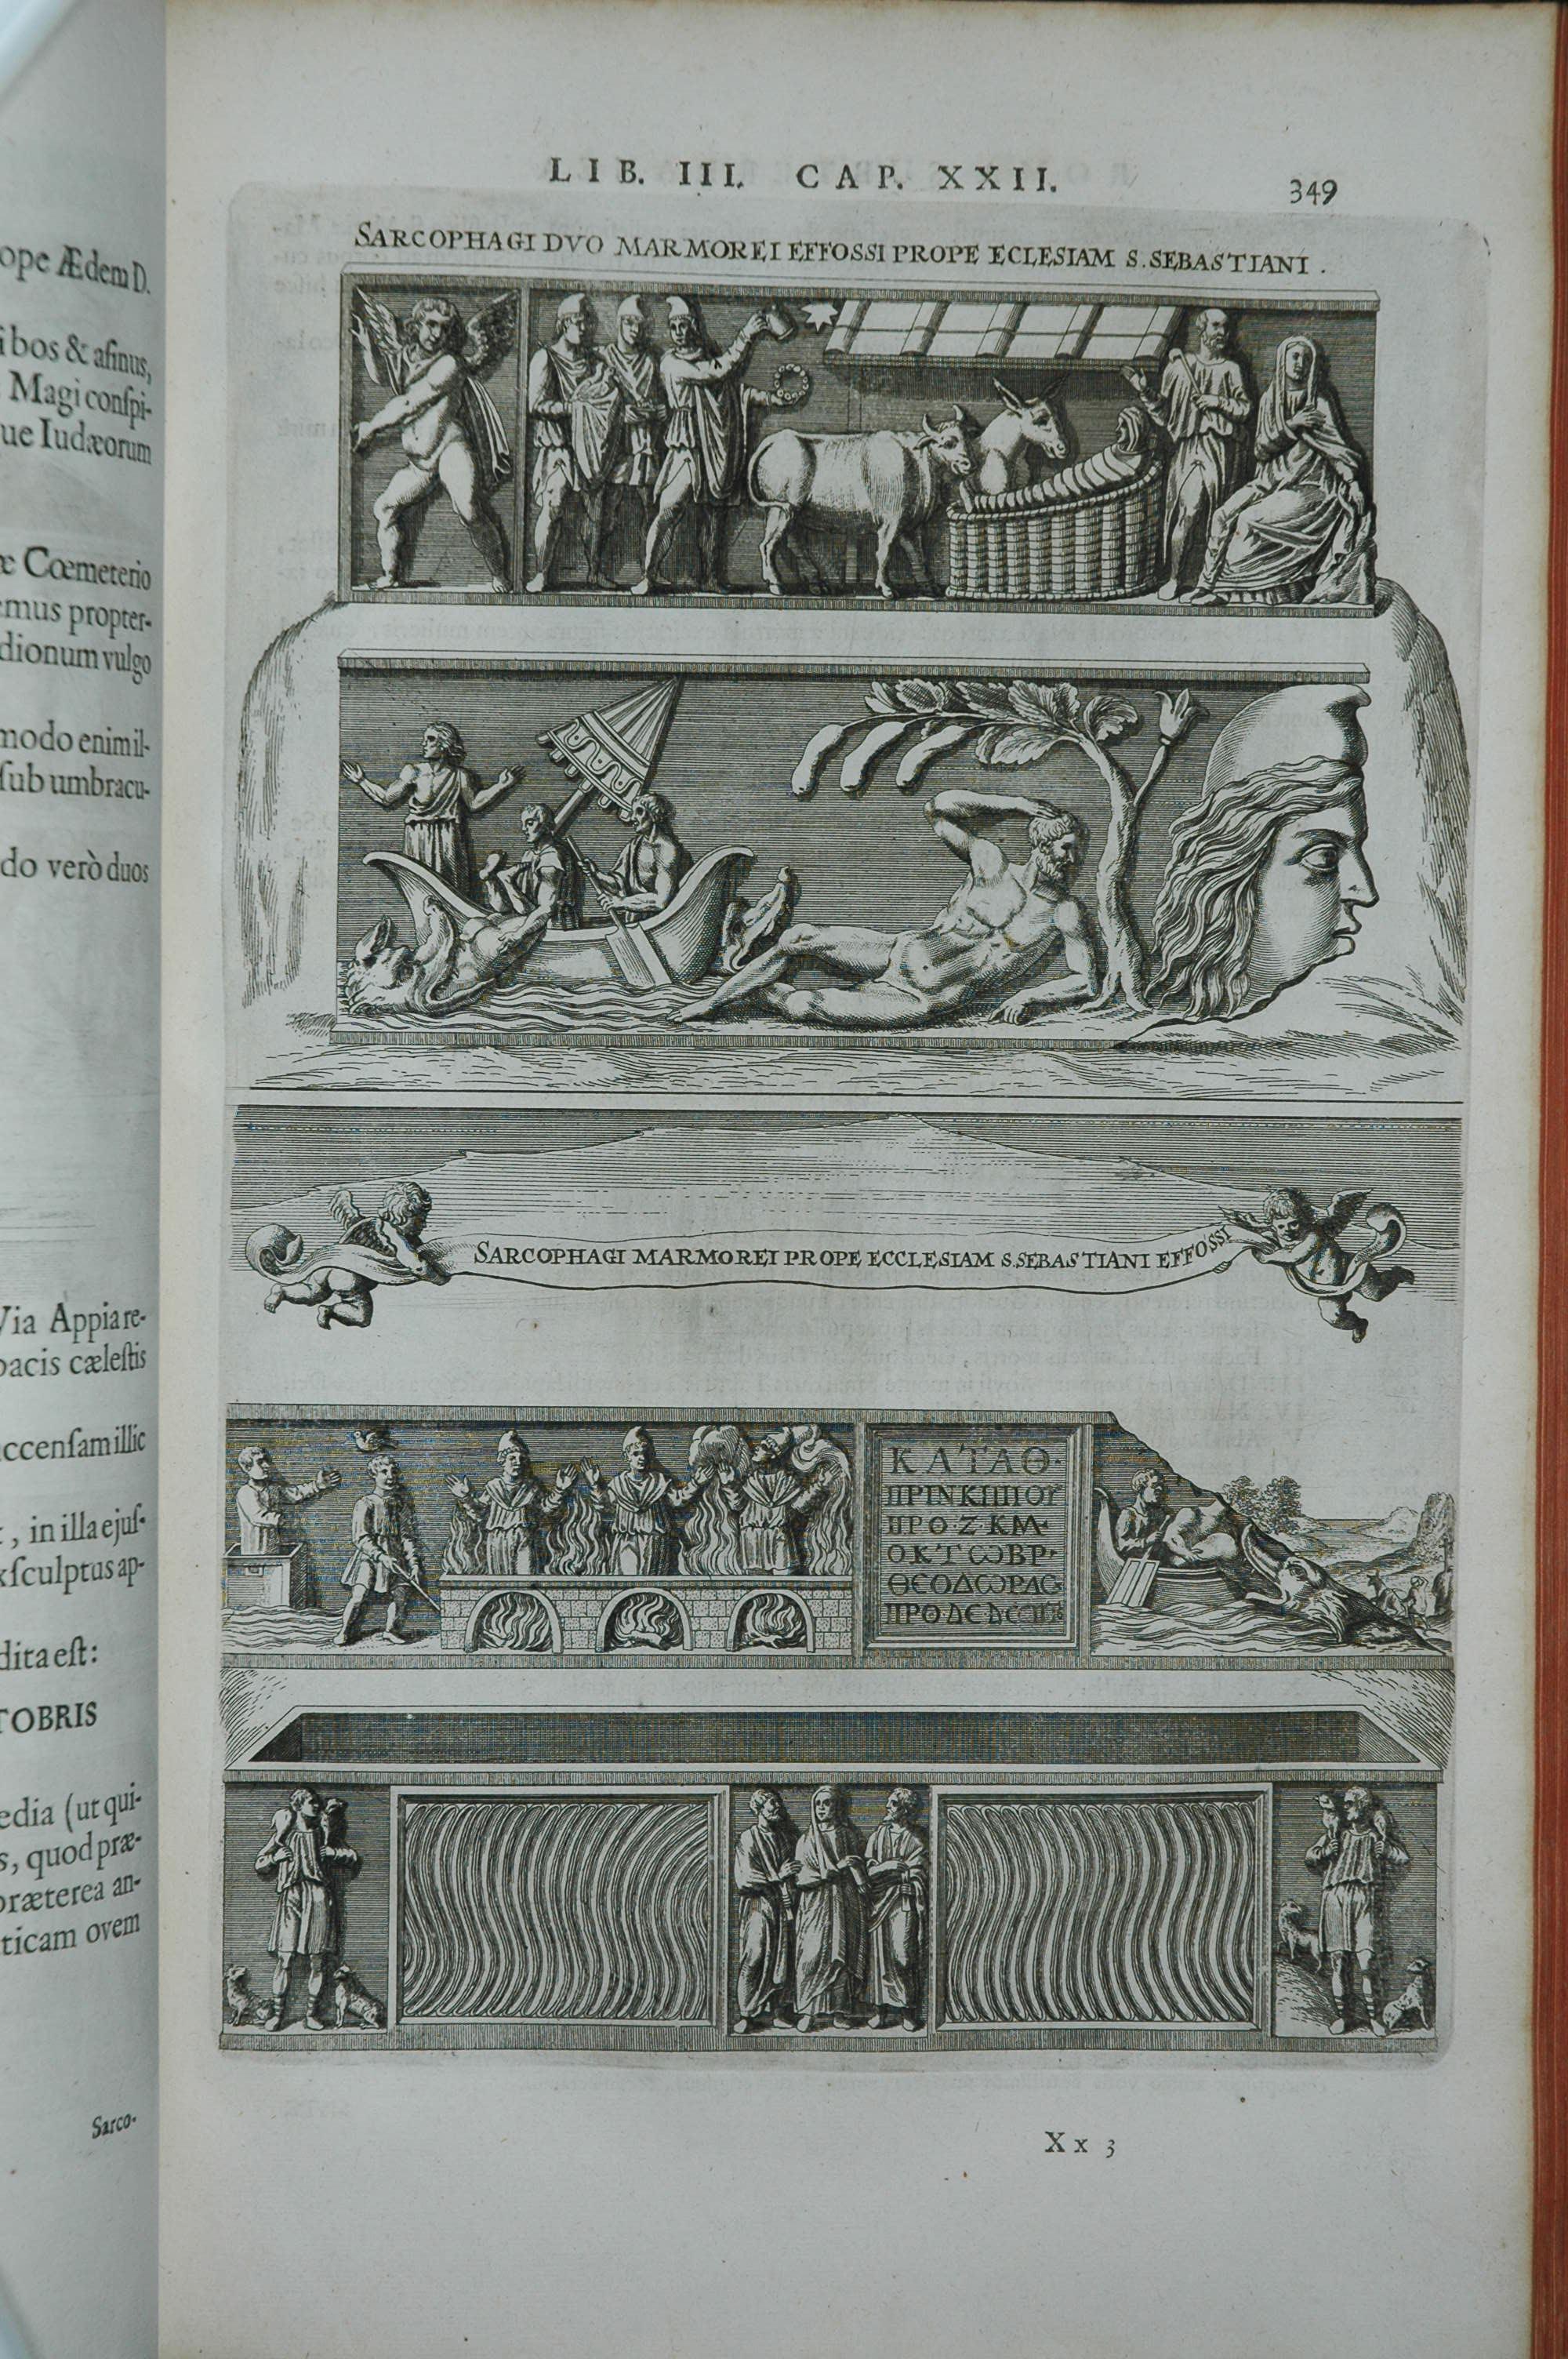 ope Ædem D.
i bos & asinus,
Magi conspi-
ue Iudæorum
æ Cœmeterio
emus propter-
dionum vulgo
modo enim il-
sub umbracu-
do verò duos
Via Appia re-
pacis cælestis
ccensam illic
, in illa ejus-
xsculptus ap-
dita est:
TOBRIS
edia (ut qui-
s, quod præ-
præterea an-
ticam ovem
Sarco-
LIB. III. CAP. XXII.
349
SARCOPHAGI DVO MARMOREI EFFOSSI PROPE ECLESIAM S. SEBASTIANI .
SARCOPHAGI MARMOREI PROPE ECCLESIAM S. SEBASTIANI EFFOSSI
ΚΑΤΑΘ·
ΠΡΙΝΚΙΠΙΟΥ
ΠΡΟ·Ζ·ΚΜ·
ΟΚΤⲰΒΡ·
ΘΕΟΔⲰΡΑϹ·
Xx 3